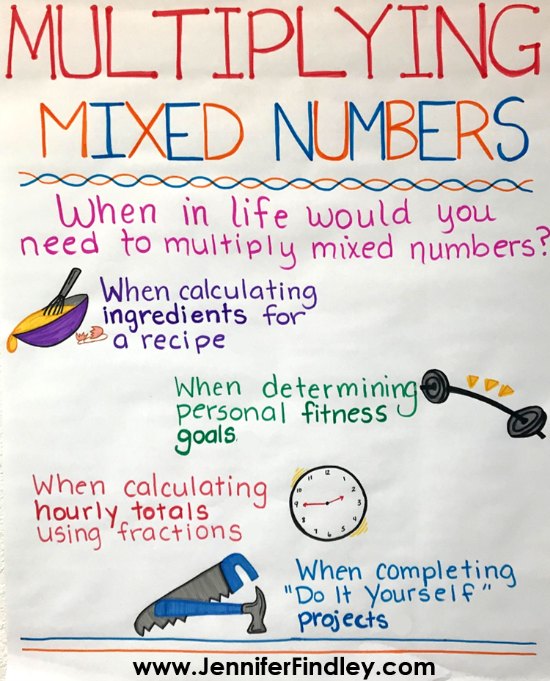 MULTIPLYING
MIXED NUMBERS
When in life would you
need to multiply mixed numbers?
When calculating
ingredients for
a recipe
When determining
personal fitness
goals
When calculating
hourly totals
using fractions
12
1
2
3
4
5
6
7
8
9
10
11
When completing
"Do It Yourself"
projects
www.JenniferFindley.com